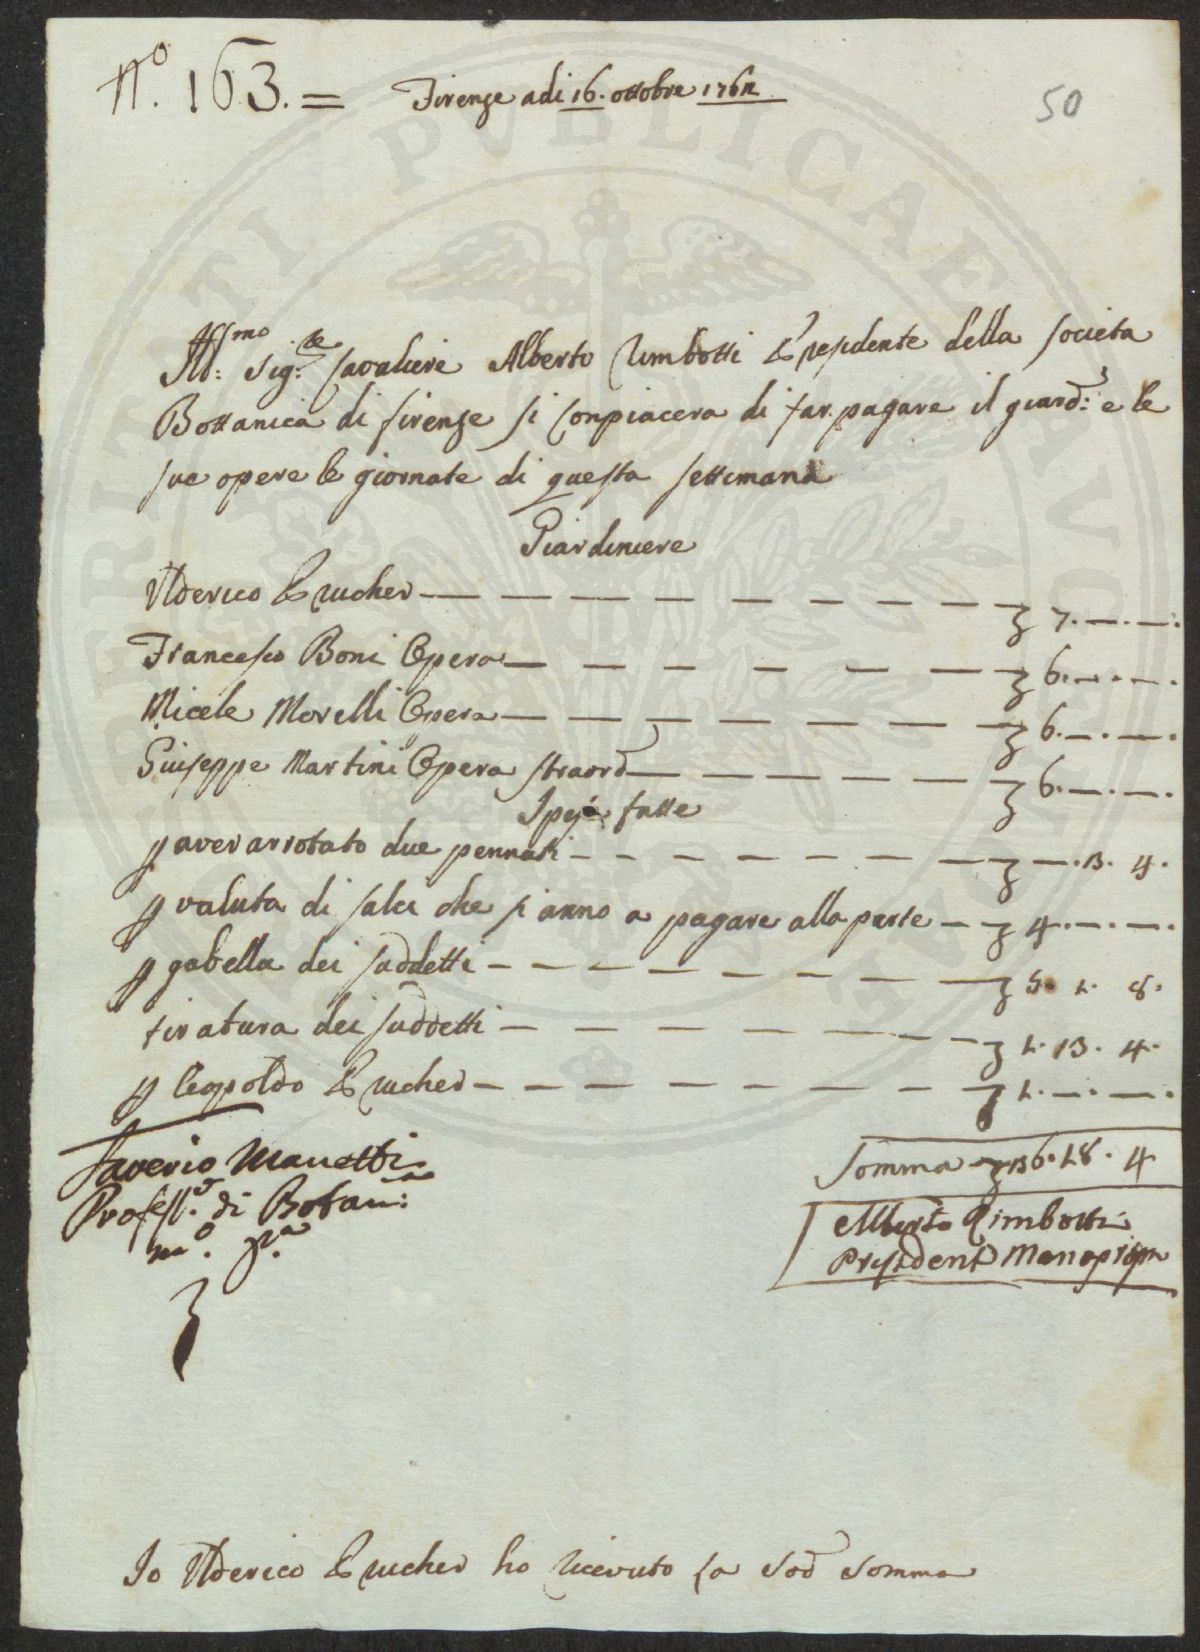 Nº. 163. =
Firenze adi 16. ottobre 1762
50
Ill:mo Sig:re Cavaliere Alberto Rimbotti Presidente della Societa
Bottanica di firenze si Conpiacera di far pagare il giard: e le
sue opere le giornate di questa settimana
Giardiniere
Ulderico Prucher — — — — — — — — 7. —. —.
Francesco Boni Opera — — — — — — 6. —. —.
Micele Morelli Opera — — — — — — 6. —. —.
Giuseppe Martini Opera straord — — — — — 6. —. —.
Spese fatte
p aver arrotato due pennati — — — — — — —. 13. 4.
p valuta di salci che si anno a pagare alla parte — 4. —. —.
p gabella dei suddetti — — — — — — 5. 1. 8.
tiratura dei suddetti — — — — — — 1. 13. 4.
p Leopoldo Prucher — — — — — — 1. —. —.
Somma 36. 18. 4
Saverio Manetti
Profess:r di Botan:a
mº. pª.
Alberto Rimbotti
President Manopropa
Io Ulderico Prucher ho ricevuto la Sod Somma
PUBLICAE